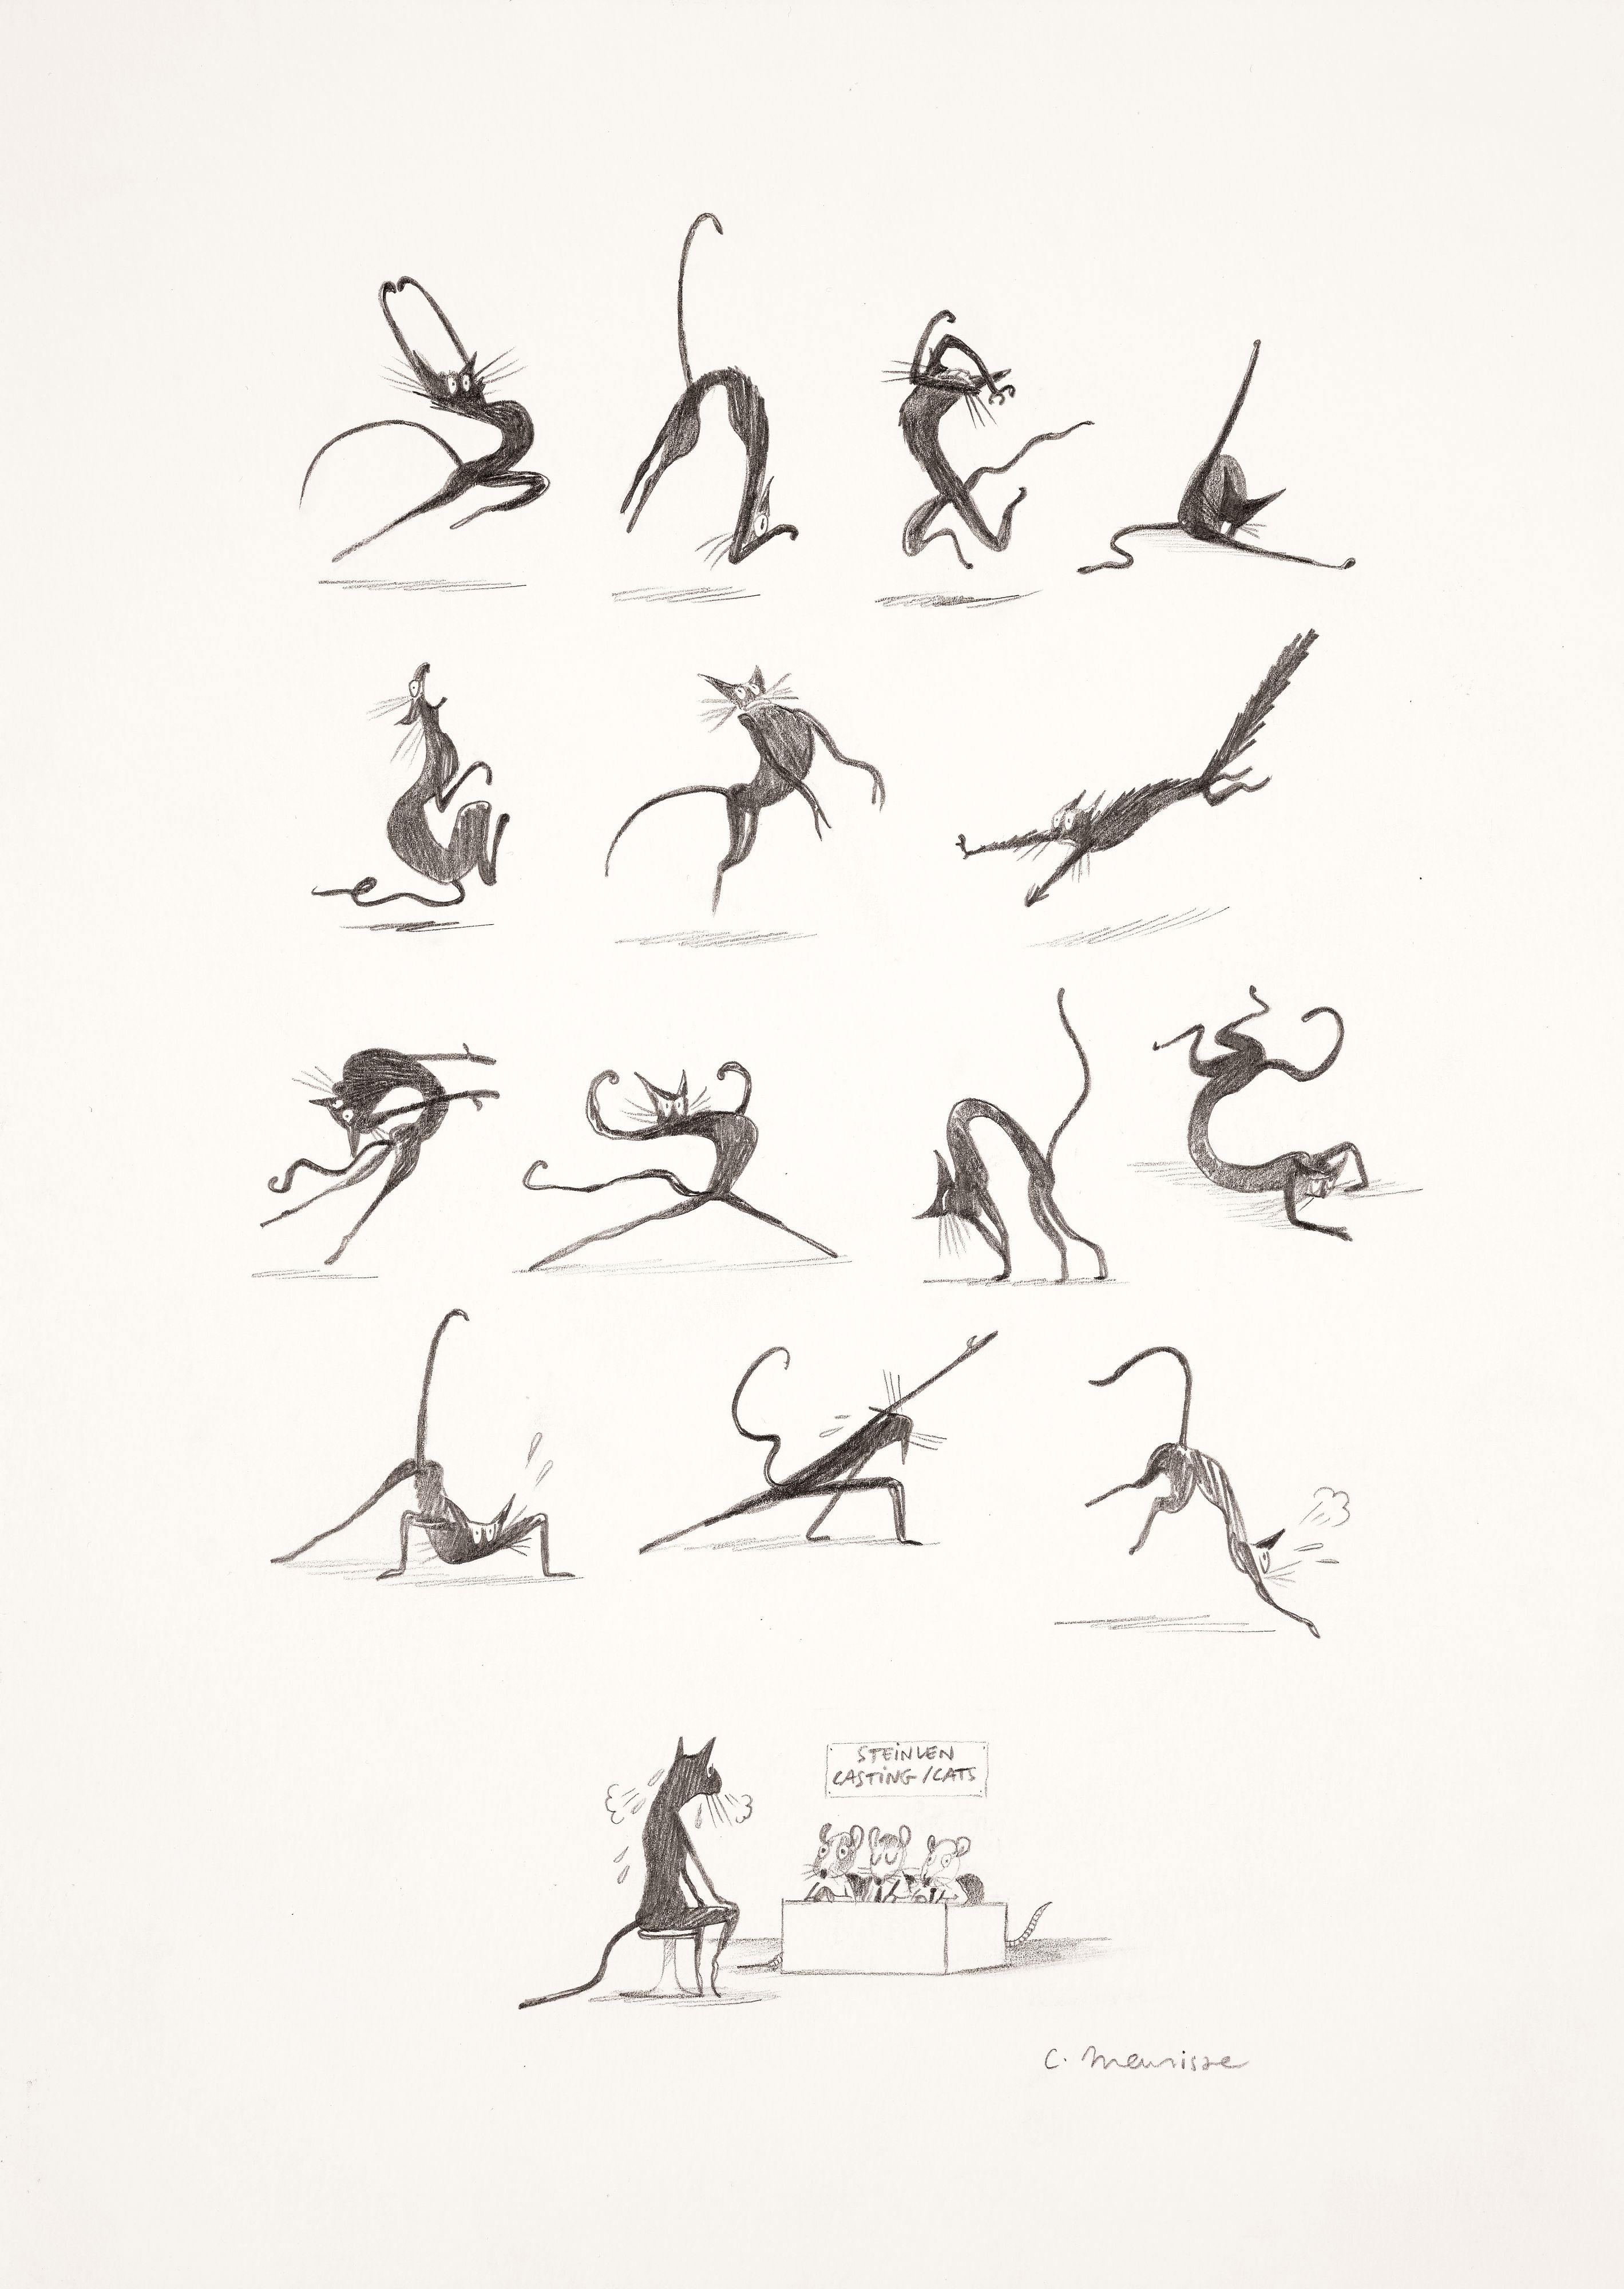 STEINLEN
CASTING / CATS
C. Meurisse